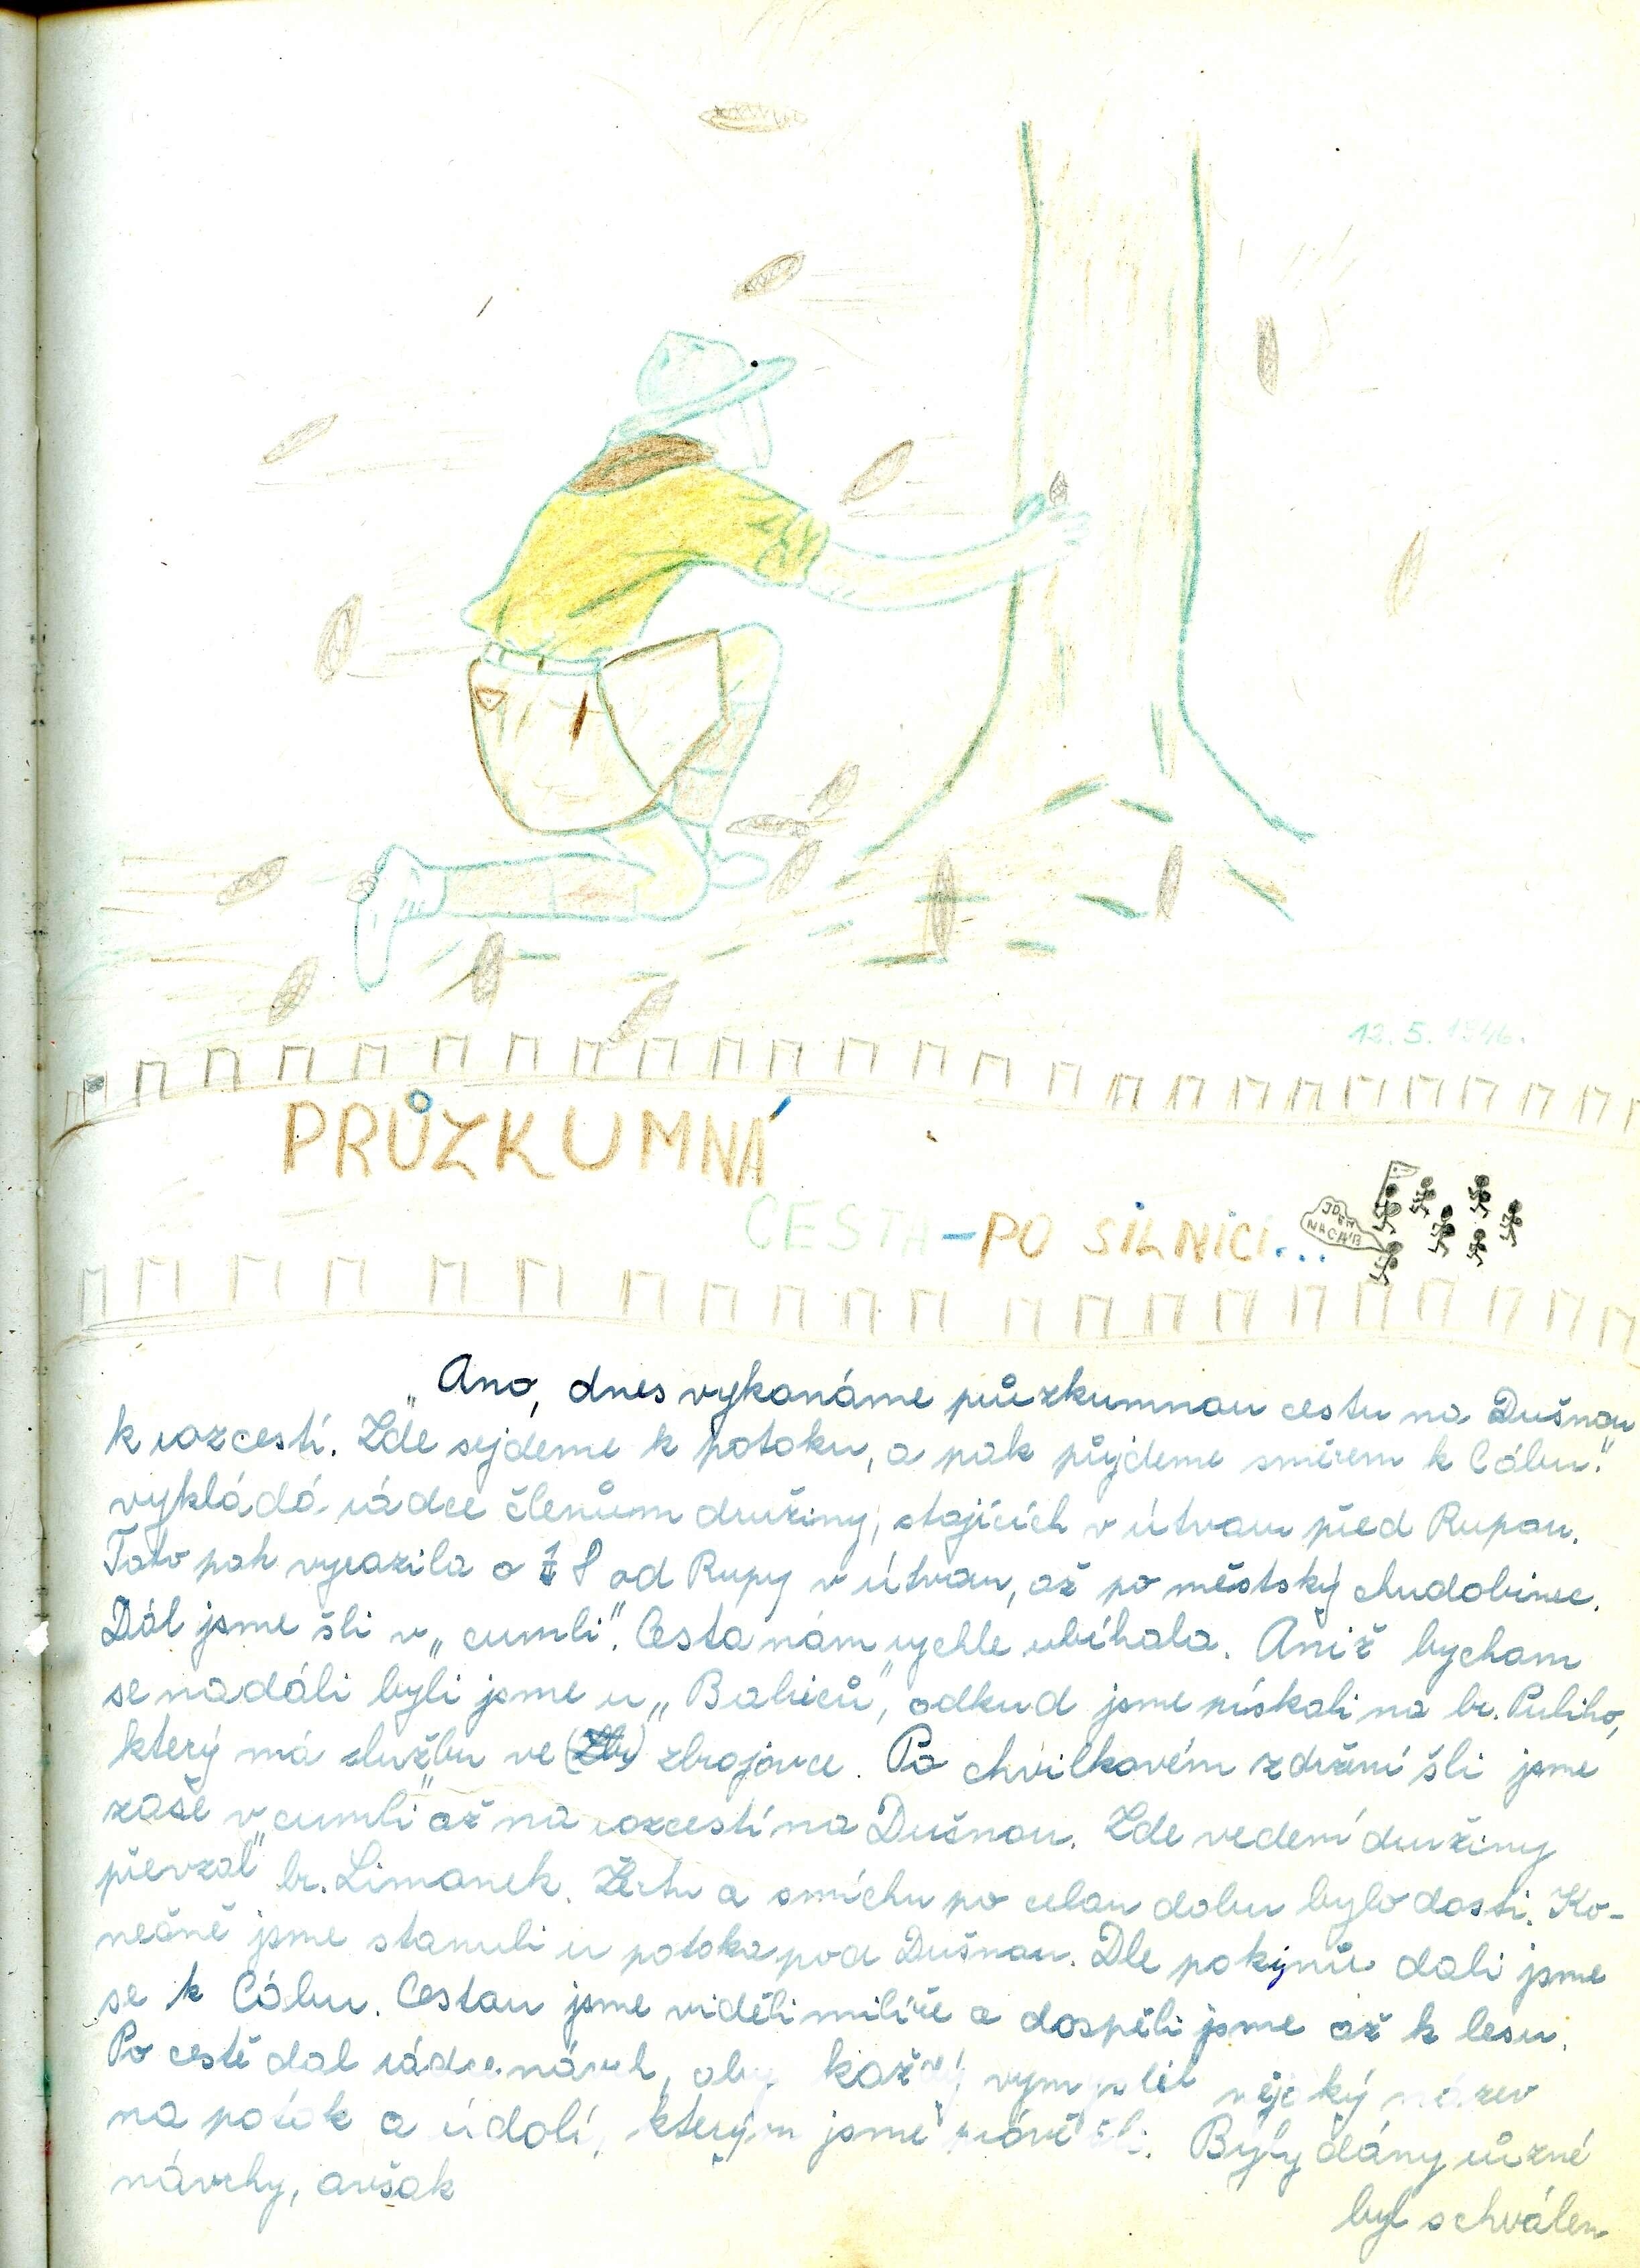 12. 5. 1946.
PRŮZKUMNÁ
CESTA - PO SILNICI...
JDEM NACHÍB
„Ano, dnes vykonáme průzkumnou cestu na Dušnou
k rozcestí. Zde sejdeme k potoku, a pak půjdeme směrem k Cábu."
vykládá rádce členům družiny, stojících v útvaru před Rupou.
Tato pak vyrazila o od Rupy v útvaru, až po městský chudobinec.
Dál jsme šli v „cumli". Cesta nám rychle ubíhala. Aniž bychom
se nadáli byli jsme u „Babiců", odkud jsme pískali na br. Puliho,
který má službu ve (Zbr) zbrojovce. Po chvilkovém zdržení šli jsme
zase v „cumli" až na rozcestí na Dušnou. Zde vedení družiny
převzal br. Limanek. Žertu a smíchu po celou dobu bylo dosti. Ko-
nečně jsme stanuli u potoka pod Dušnou. Dle pokynů dali jsme
se k Cábu. Cestou jsme viděli milíře a dospěli jsme až k lesu.
Po cestě dal rádce návrh, aby každý vymyslil nějaký název
na potok a údolí, kterým jsme právě šli. Byly dány různé
návrhy, avšak
byl schválen